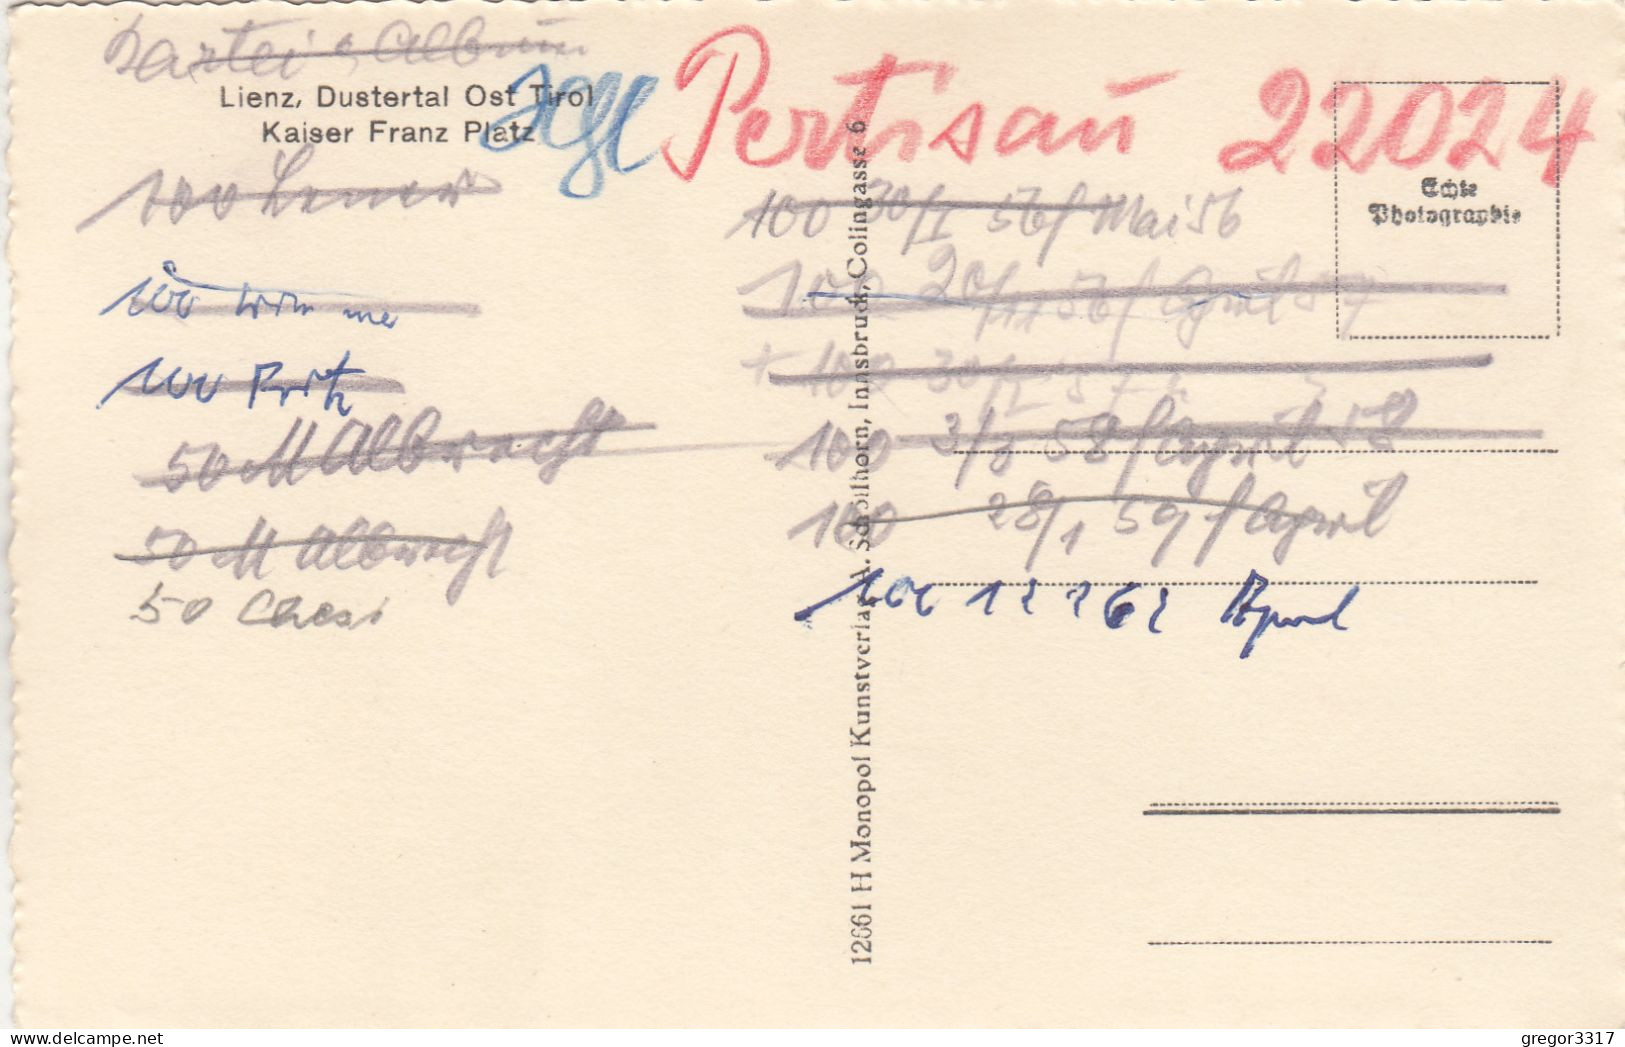 Kartei + Album
Lienz, Dustertal Ost Tirol
Kaiser Franz Platz
Pertisau 22024
Echte
Photographie
100
100 30/I 56 / Mai 56
100 20/11 56 / April 57
100
+ 100 30/I 57
100 Fritz
100 3/3 58 / April 58
50 M Albrecht
100 28/1 59 / April
50 M Albrecht
100 12 2 62 April
50 Chesi
12661 H Monopol Kunstverlag A. Schöllhorn, Innsbruck, Colingasse 6
gregor3317